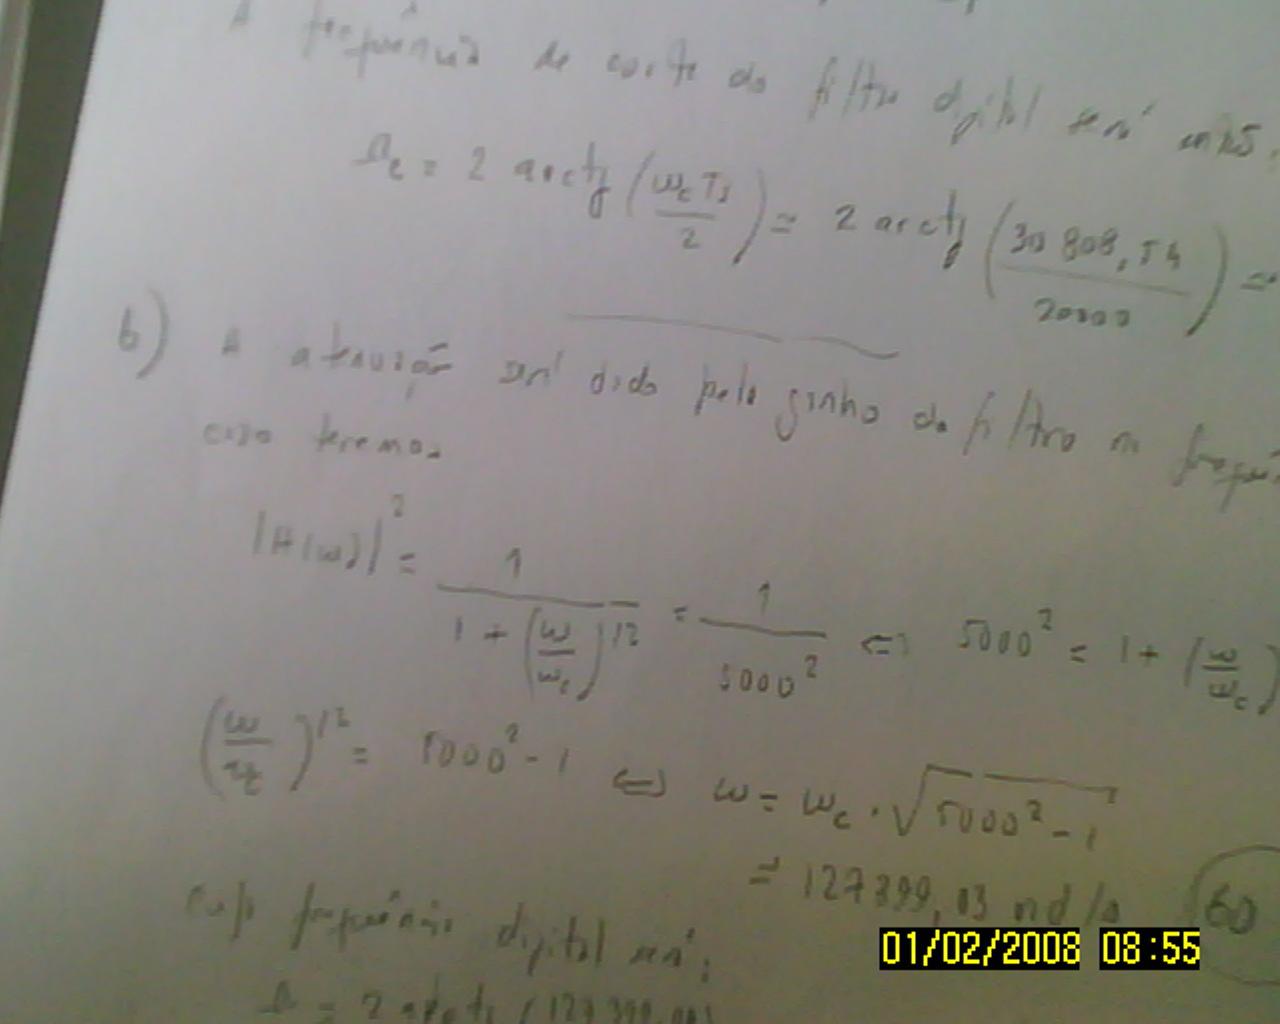 A frequência de corte do filtro digital será então:
Ωc = 2 arctg (ωc Ts / 2) = 2 arctg (30 808,54 / 20000) =
b) A atenuação será dado pelo ganho do filtro na
caso teremos
|H(ω)|² = 1 / (1 + (ω/ωc)^12) = 1 / 5000² ⇔ 5000² = 1 + (ω/ωc)
(ω/ωc)^12 = 5000² - 1 ⇔ ω = ωc · √(5000² - 1)
= 127399,03 rad/s
60
cuja frequência digital será:
Ω = 2 arctg (127399,03
01/02/2008 08:55